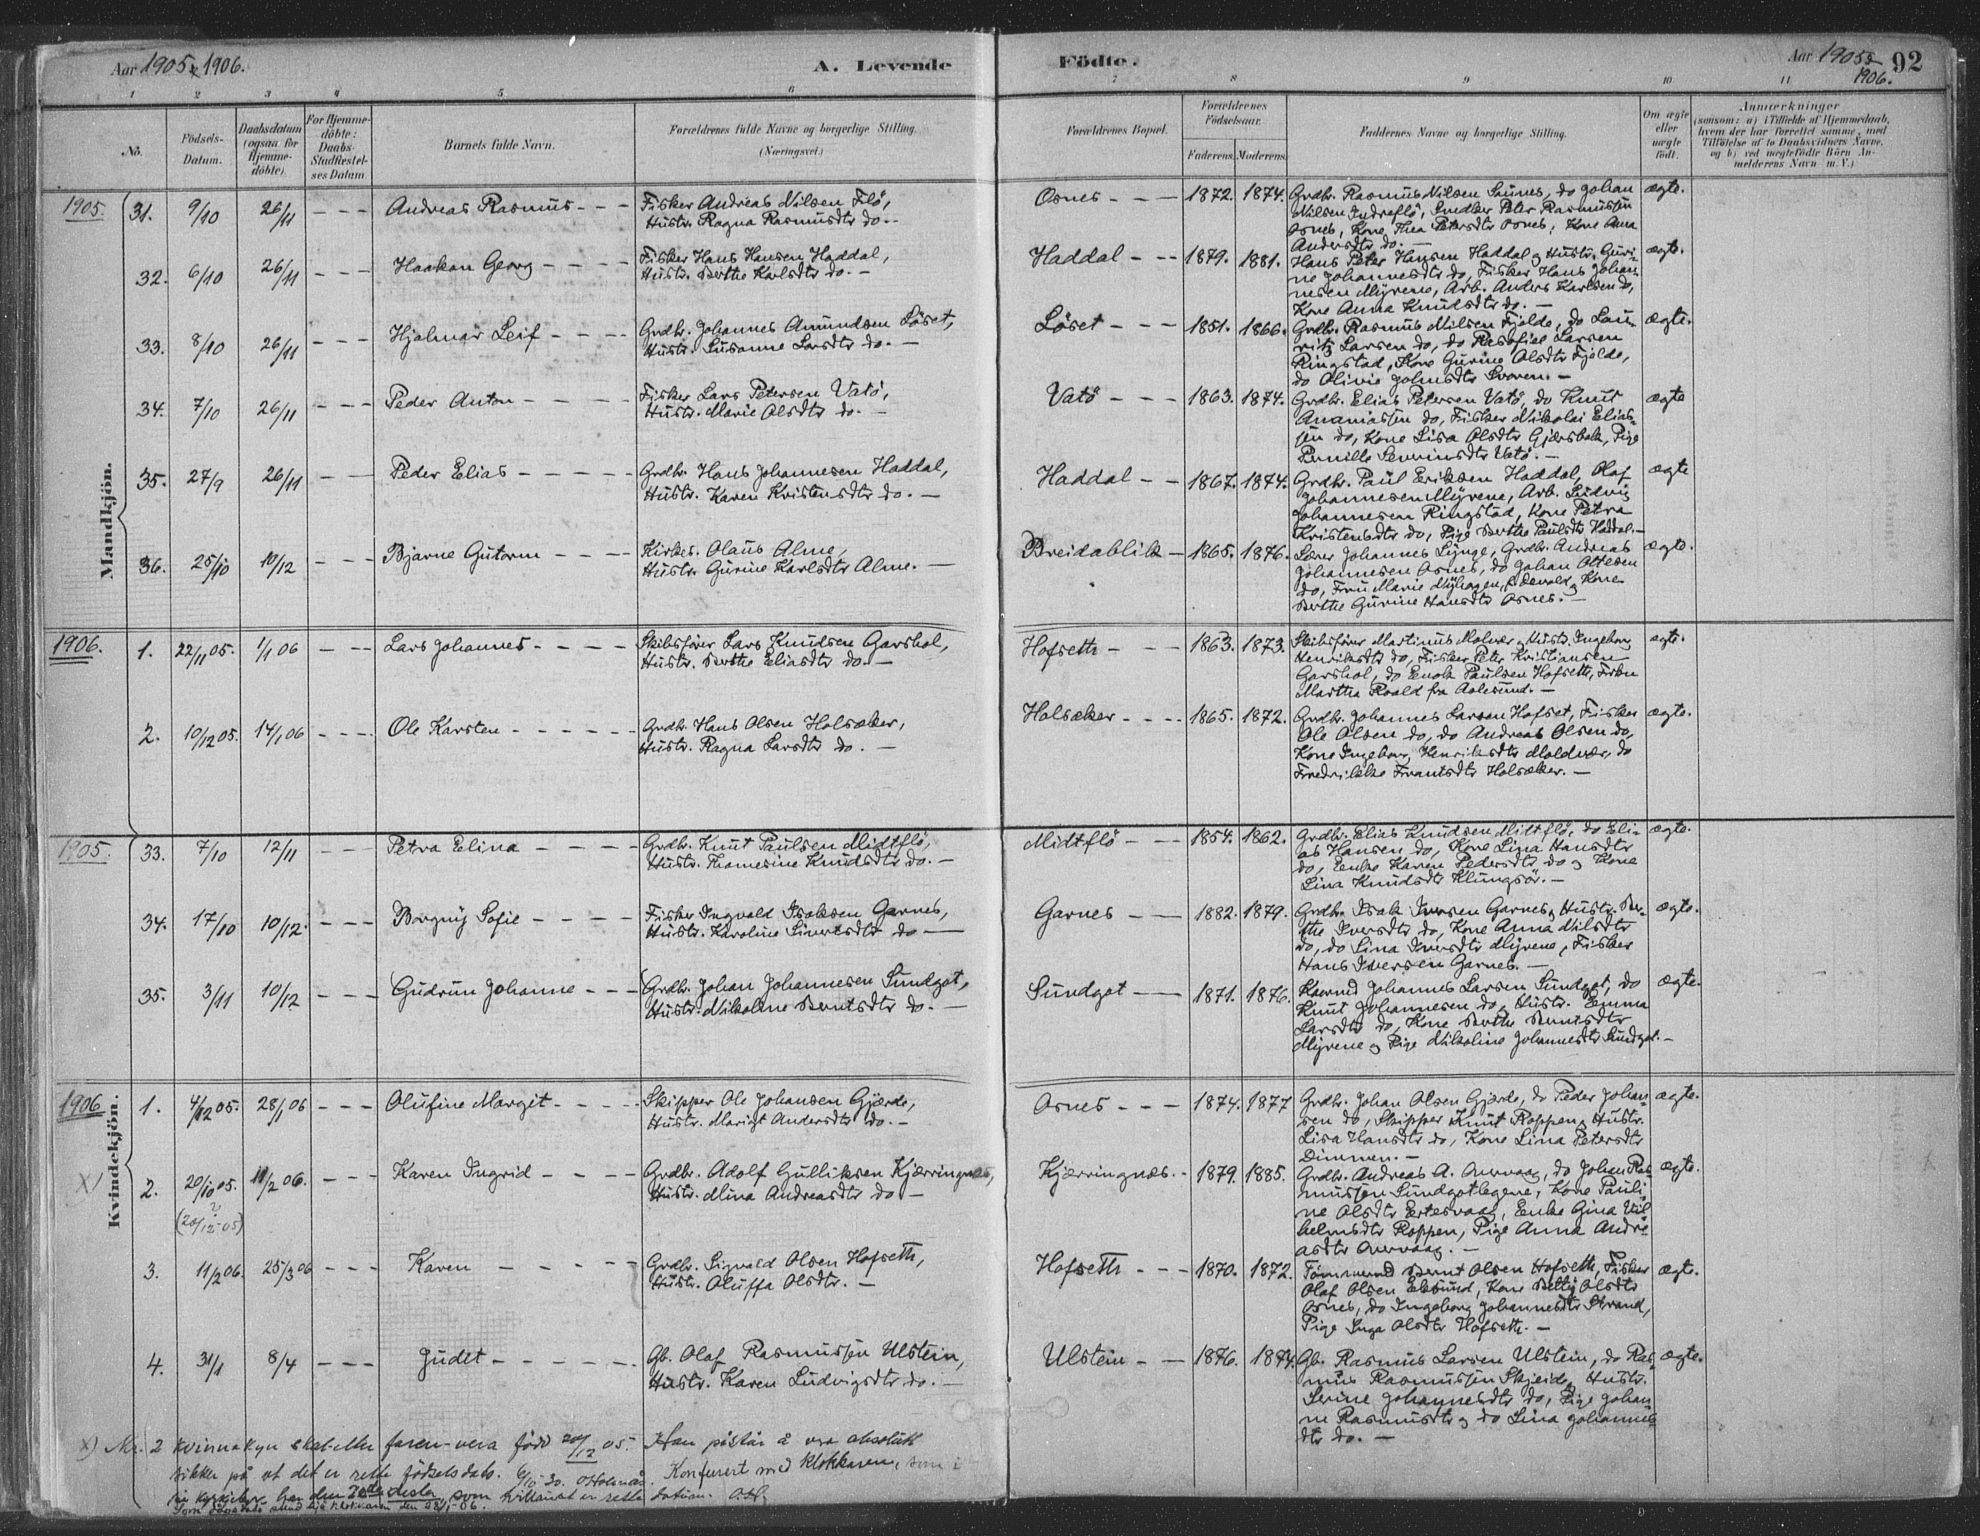 Aar 1905 & 1906.
A. Levende
Födte.
Aar 1905 &
1906.
92
1 2 3 4 5 6 7 8 9 10 11
No.
Födsels-
Datum.
Daabsdatum
(ogsaa for
Hjemme-
döbte).
For Hjemme-
döbte:
Daabs-
Stadfæstel-
ses Datum.
Barnets fulde Navn.
Forældrenes fulde Navne og borgerlige Stilling.
(Næringsvei.)
Forældrenes Bopæl.
Forældrenes
Födselsaar.
Faderens. Moderens.
Faddernes Navne og borgerlige Stilling.
Om ægte
eller
uægte
födt.
Anmærkninger
(saasom: a) i Tilfælde af Hjemmedaab,
hvem der har forrettet samme, med
Tilföielse af to Daabsvidners Navne,
og b) ved uægtefödte Börn An-
melderens Navn m. V.)
Mandkjön.
1905. 31. 9/10 26/11 - - - Andreas Rasmus - - - Fisker Andreas Nilsen Flö,
Hustr. Ragna Rasmusdtr do. -
Osnes - - - 1872. 1874. Grdbr. Rasmus Nilsen Saunes, do Johan
Nilsen Indreflö, Snedker Peter Rasmussen
Osnes, Kone Thea Petersdtr Osnes, Kone Anna
Andersdtr do. - ægte.
32. 6/10 26/11 - - - Haakon Georg - - - - Fisker Hans Hansen Haddal,
Hustr. Berthe Karlsdtr do. -
Haddal - - - 1879. 1881. Hans Peter Hansen Haddal og Hustr. Guri-
ne Johannesdtr do, Fisker Hans Johan-
nesen Myrene, Arb. Anders Karlsen do,
Kone Anna Knudsdtr do. - ægte.
33. 8/10 26/11 - - - Hjalmar Leif - - - - Grdbr. Johannes Amundsen Löset,
Hustr. Susanne Larsdtr do. -
Löset - - - 1851. 1866. Grdbr. Rasmus Nilsen Fjelde, do Lau-
ritz Larsen do, do Rasmus Larsen
Ringstad, Kone Gurine Olsdtr Fjelde,
do Olivie Johnsdtr Svoren. - ægte.
34. 7/10 26/11 - - - Peder Anton - - - - Fisker Lars Petersen Vatö,
Hustr. Marie Olsdtr do. -
Vatö - - - 1863. 1874. Grdbr. Elias Petersen Vatö, do Knut
Ananiassen do, Fisker Nikolai Elias-
sen do, Kone Lisa Olsdtr Gjærsbak, Pige
Pernille Severinsdtr Vatö. - ægte
35. 27/9 26/11 - - Peder Elias - - - - - Grdbr. Hans Johannesen Haddal,
Hustr. Karen Kristensdtr do. -
Haddal - - 1867. 1874. Grdbr. Paul Eriksen Haddal, Olaf
Johannesen Myrene, Arb. Ludvig
Johannesen Ringstad, Kone Petra
Kristensdtr do, Pige Berthe Paulsdtr Haddal. - ægte
36. 25/10 10/12 - - - Bjarne Gutorm - - - Kirkes. Olaus Alme,
Hustr. Gurine Karlsdtr Alme. -
Breidablik - 1865. 1876. Lærer Johannes Lynge, Grdbr. Andreas
Johannesen Osnes, do Johan Ottesen
do, Fru Marie Myhagen, og Kone
Berthe Gurine Hansdtr Osnes. - ægte.
1906. 1. 22/11 05. 1/1 06 - - - Lars Johannes - - - - Skibsförer Lars Knudsen Garshol,
Hustr. Berthe Eliasdtr do. -
Hofseth - - - 1863. 1873. Skibsförer Martinus Molvær og Hustr. Ingeborg
Henriksdtr do, Fisker Peter Kristiansen
Garshol, do Enok Paulsen Hofseth, Frøken
Martha Roald fra Aalesund. - ægte.
2. 10/12 05. 14/1 06 - - - Ole Karsten - - - - - - Grdbr. Hans Olsen Holsæker,
Hustr. Ragna Larsdtr do. -
Holsæker - - - - 1865. 1872. Grdbr. Johannes Larsen Hofset, Fisker
Ole Olsen do, do Andreas Olsen do,
Kone Ingeborg Henriksdtr Moldvær, do
Fredrikke Frantsdtr Holsæker. - ægte.
Kvindekjön.
1905. 33. 7/10 12/11 - - - Petra Elina - - - - Grdbr. Knut Paulsen Midtflö,
Hustr. Thomesine Knudsdtr do. -
Midtflö - - - 1854. 1862. Grdbr. Elias Knudsen Midtflö, do Eli-
as Hansen do, Kone Lina Hansdtr
do, Enke Karen Pedersdtr do og Kone
Lina Knudsdtr Klungsör. - ægte.
34. 17/10 10/12. - - - Borgny Sofie - - - - Fisker Ingvald Isaksen Garnes,
Hustr. Karoline Sivertsdtr do -
Garnes - - 1882. 1879. Grdbr. Isak Iversen Garnes og Hustr. Ber-
the Iversdtr do, Kone Anna Nilsdtr
do, do Lina Iversdtr Myrene, Fisker
Hans Iversen Garnes. - ægte.
35. 3/11 10/12 - - - Gudrun Johanne - - - Grdbr. Johan Johannesen Sundgot,
Hustr. Nikoline Berntsdtr do. -
Sundgot - - 1871. 1876. Kaarmd Johannes Larsen Sundgot, do
Knut Johannesen do, Hustr. Emma
Larsdtr do, Kone Berthe Berntsdtr
Myrene og Pige Nikoline Johannesdtr Sundgot. - ægte.
1906 1. 4/12 05. 28/1 06 - - - Olufine Margit - - - - Skipper Ole Johansen Gjerde,
Hustr. Marigt Andersdtr do. -
Osnes - - - 1874. 1877 Grdbr. Johan Olsen Gjerde, do Peder Johan-
sen do, Skipper Knut Roppen, Hustr.
Lisa Hansdtr do, Kone Lina Petersdtr
Dimmen. - ægte.
X) 2. 20/10 05. 11/2 06. - - - Karen Ingrid - - - - Grdbr. Adolf Gulliksen Kjærringnæs,
?
(20/12-05)
Hustr. Mina Andreasdtr do -
Kjærringnæs. - 1879. 1885. Grdbr. Andreas A. Aurvaag, do Johan Ras-
mussen Sundgotlegene, Kone Pauli-
ne Olsdtr Ertesvaag, Enke Gina Vil-
helmsdtr Roppen, Pige Anna Andre-
asdtr Aurvaag. - ægte.
3. 11/2 06. 25/3 06 - - - Karen - - - - Grdbr. Sigvald Olsen Hofseth,
Hustr. Oluffa Olsdtr. -
Hofseth - - - 1870. 1872. Tømmermd Bernt Olsen Hofseth, Fisker
Olaf Olsen Eiksund, Kone Betty Olsdtr
Osnes, do Ingeborg Johannesdtr Strand,
Pige Inga Olsdtr Hofseth. - ægte.
4. 31/1 8/4 - - - Judit - - - - - - Gb. Olaf Rasmussen Ulstein,
Hustr. Karen Ludvigsdtr do. -
Ulstein - - 1876. 1874. Gb. Rasmus Larsen Ulstein, do Ras-
mus Rasmussen Skjeide, Hustr.
Serine Johannesdtr do, Pige Johan-
ne Rasmusdtr og do Lina Johannes-
dtr do. - ægte.
X) Nr. 2 kvinnekyn skal etter faren vera född 20/12 05. Han påstår å vera absolutt
sikker på at det er rette födselsdato. 6/10-30. O Holsnås. Konferert med klokkaren, som i
si kyrkjebok har den 20de dester, som tvillaust er rette datum. O.H.